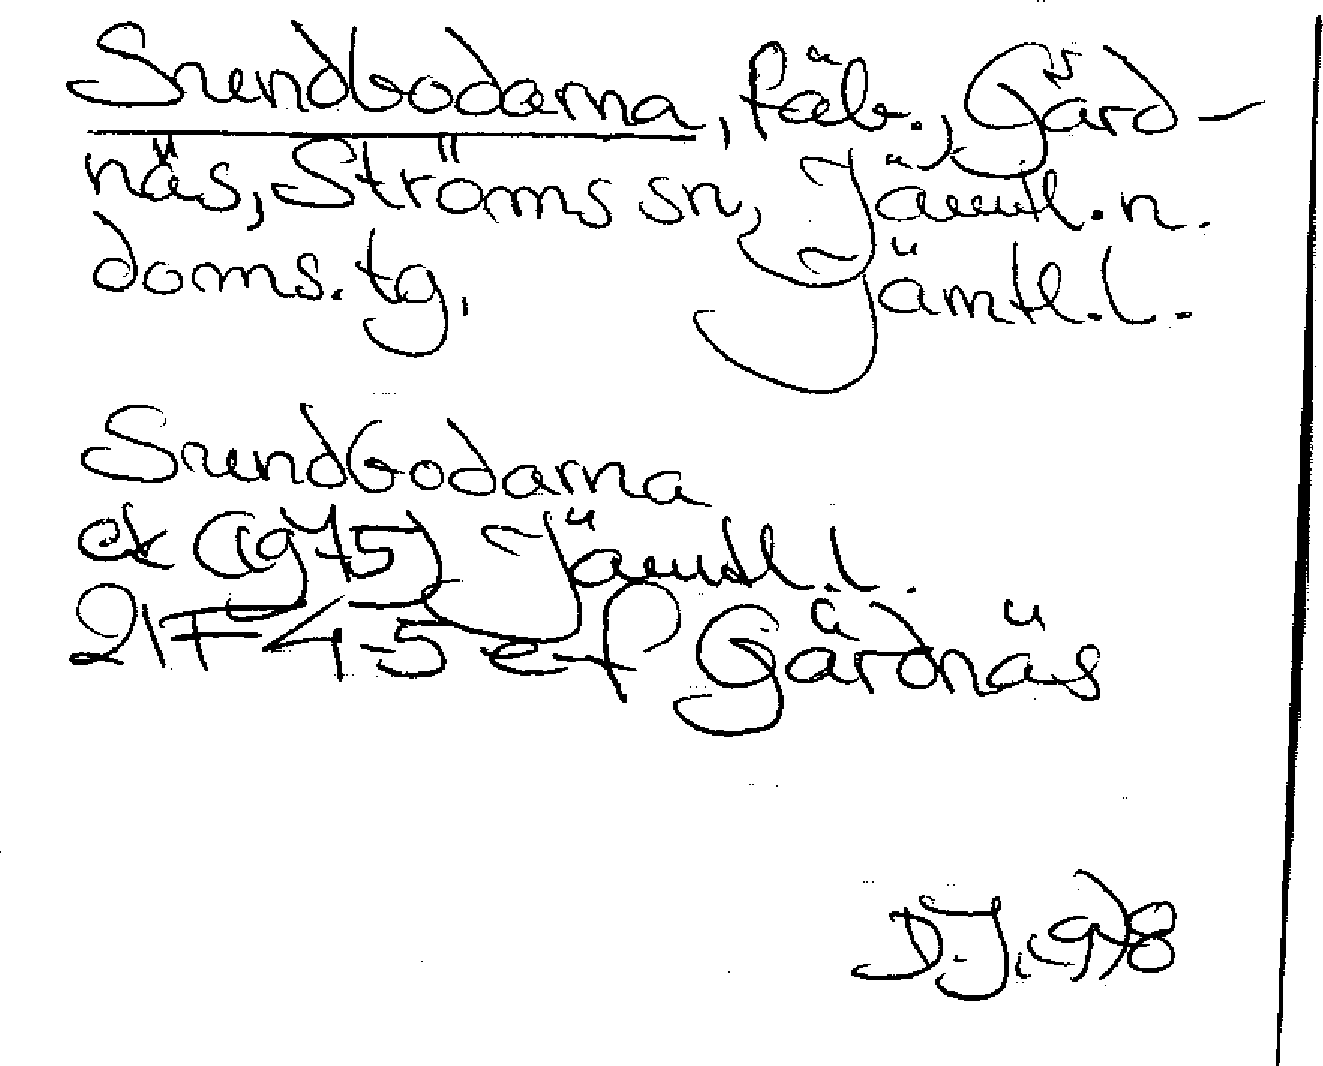 Sundbodarna, fäb., Gärd-
näs, Ströms sn, Jämtl. n.
doms. tg, Jämtl. l.
Sundbodarna
ek (1975) Jämtl. l.
21F 4-5 e-f Gärdnäs
D.J. 1978